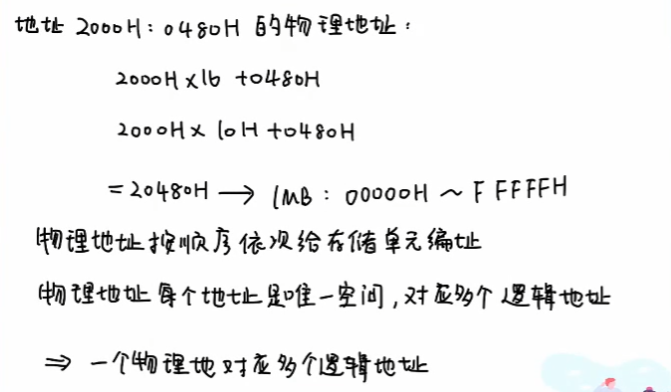 地址 2000H:0480H 的物理地址:
2000H×16 +0480H
2000H× 10H +0480H
=20480H → 1MB: 00000H ~ FFFFFH
物理地址按顺序依次给存储单元编址
物理地址每个地址是唯一空间,对应多个逻辑地址
⇒ 一个物理地对应多个逻辑地址